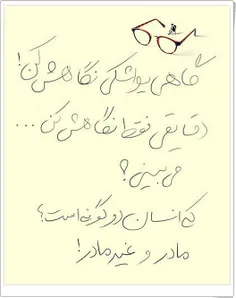 گاهی یواشکی نگاهش کن!
دقایقی فقط نگاهش کن ...
می بینی؟
که انسان دو گونه است؛
مادر و غیر مادر!